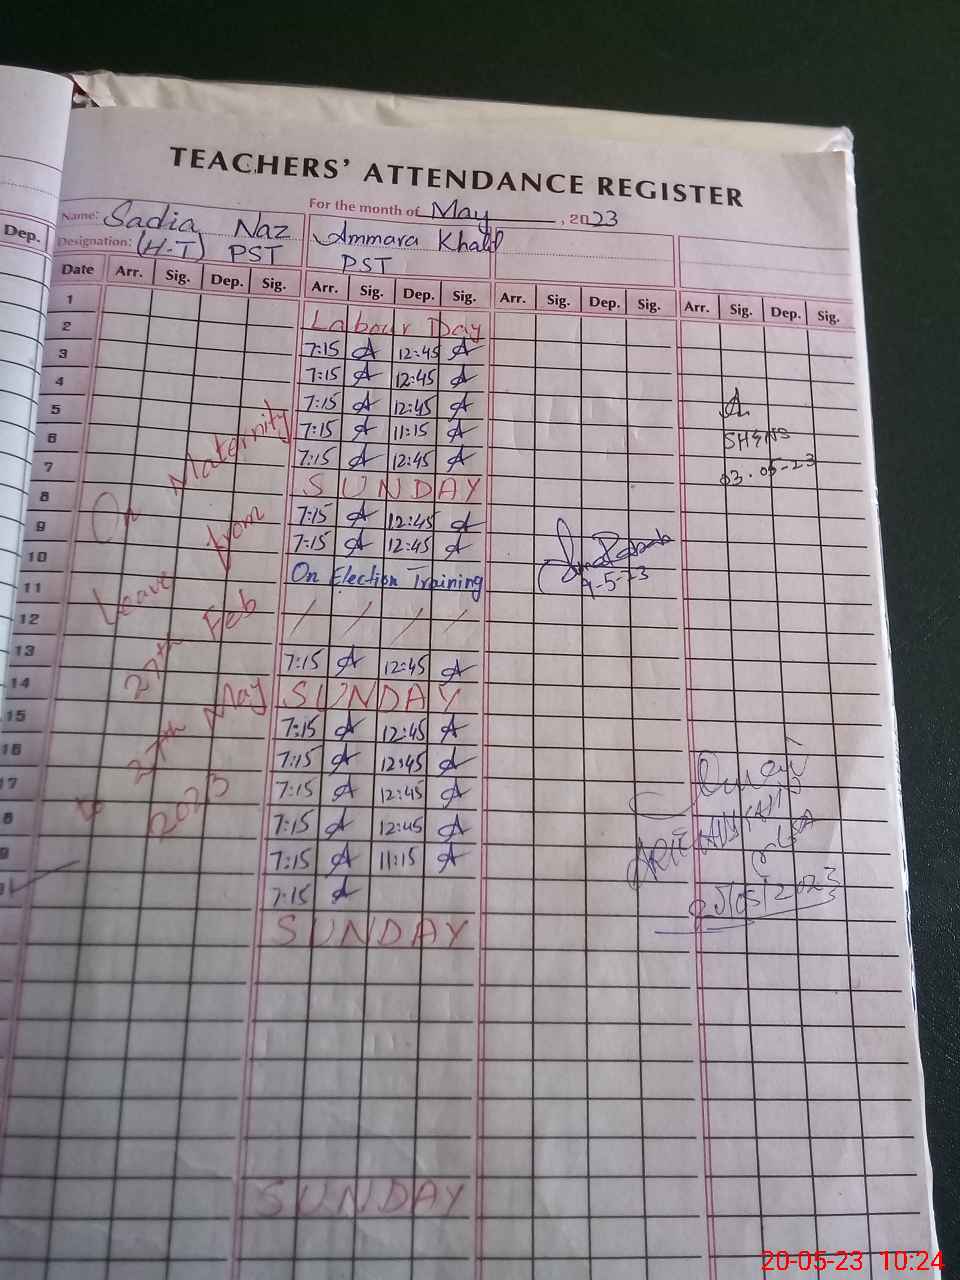 TEACHERS' ATTENDANCE REGISTER
For the month of May, 2023
Name: Sadia Naz
Designation: (H-T) PST
Ammara Khalil
PST
Dep.
Date Arr. Sig. Dep. Sig. Arr. Sig. Dep. Sig. Arr. Sig. Dep. Sig. Arr. Sig. Dep. Sig.
1
Labour Day
2
7:15 A 12:45 A
3
7:15 A 12:45 A
4
7:15 A 12:45 A
5
7:15 A 11:15 A
6
7:15 A 12:45 A
7
SUNDAY
8
7:15 A 12:45 A
9
7:15 A 12:45 A
10
On Election Training
11
/ / / /
12
13
7:15 A 12:45 A
14
SUNDAY
15
7:15 A 12:45 A
16
7:15 A 12:45 A
17
7:15 A 12:45 A
8
7:15 A 12:45 A
9
7:15 A 11:15 A
7:15 A
SUNDAY
SUNDAY
On Maternity
Leave from
27th Feb
to 27th May
2023
03.05-23
9-5-23
20/05/2023
20-05-23 10:24